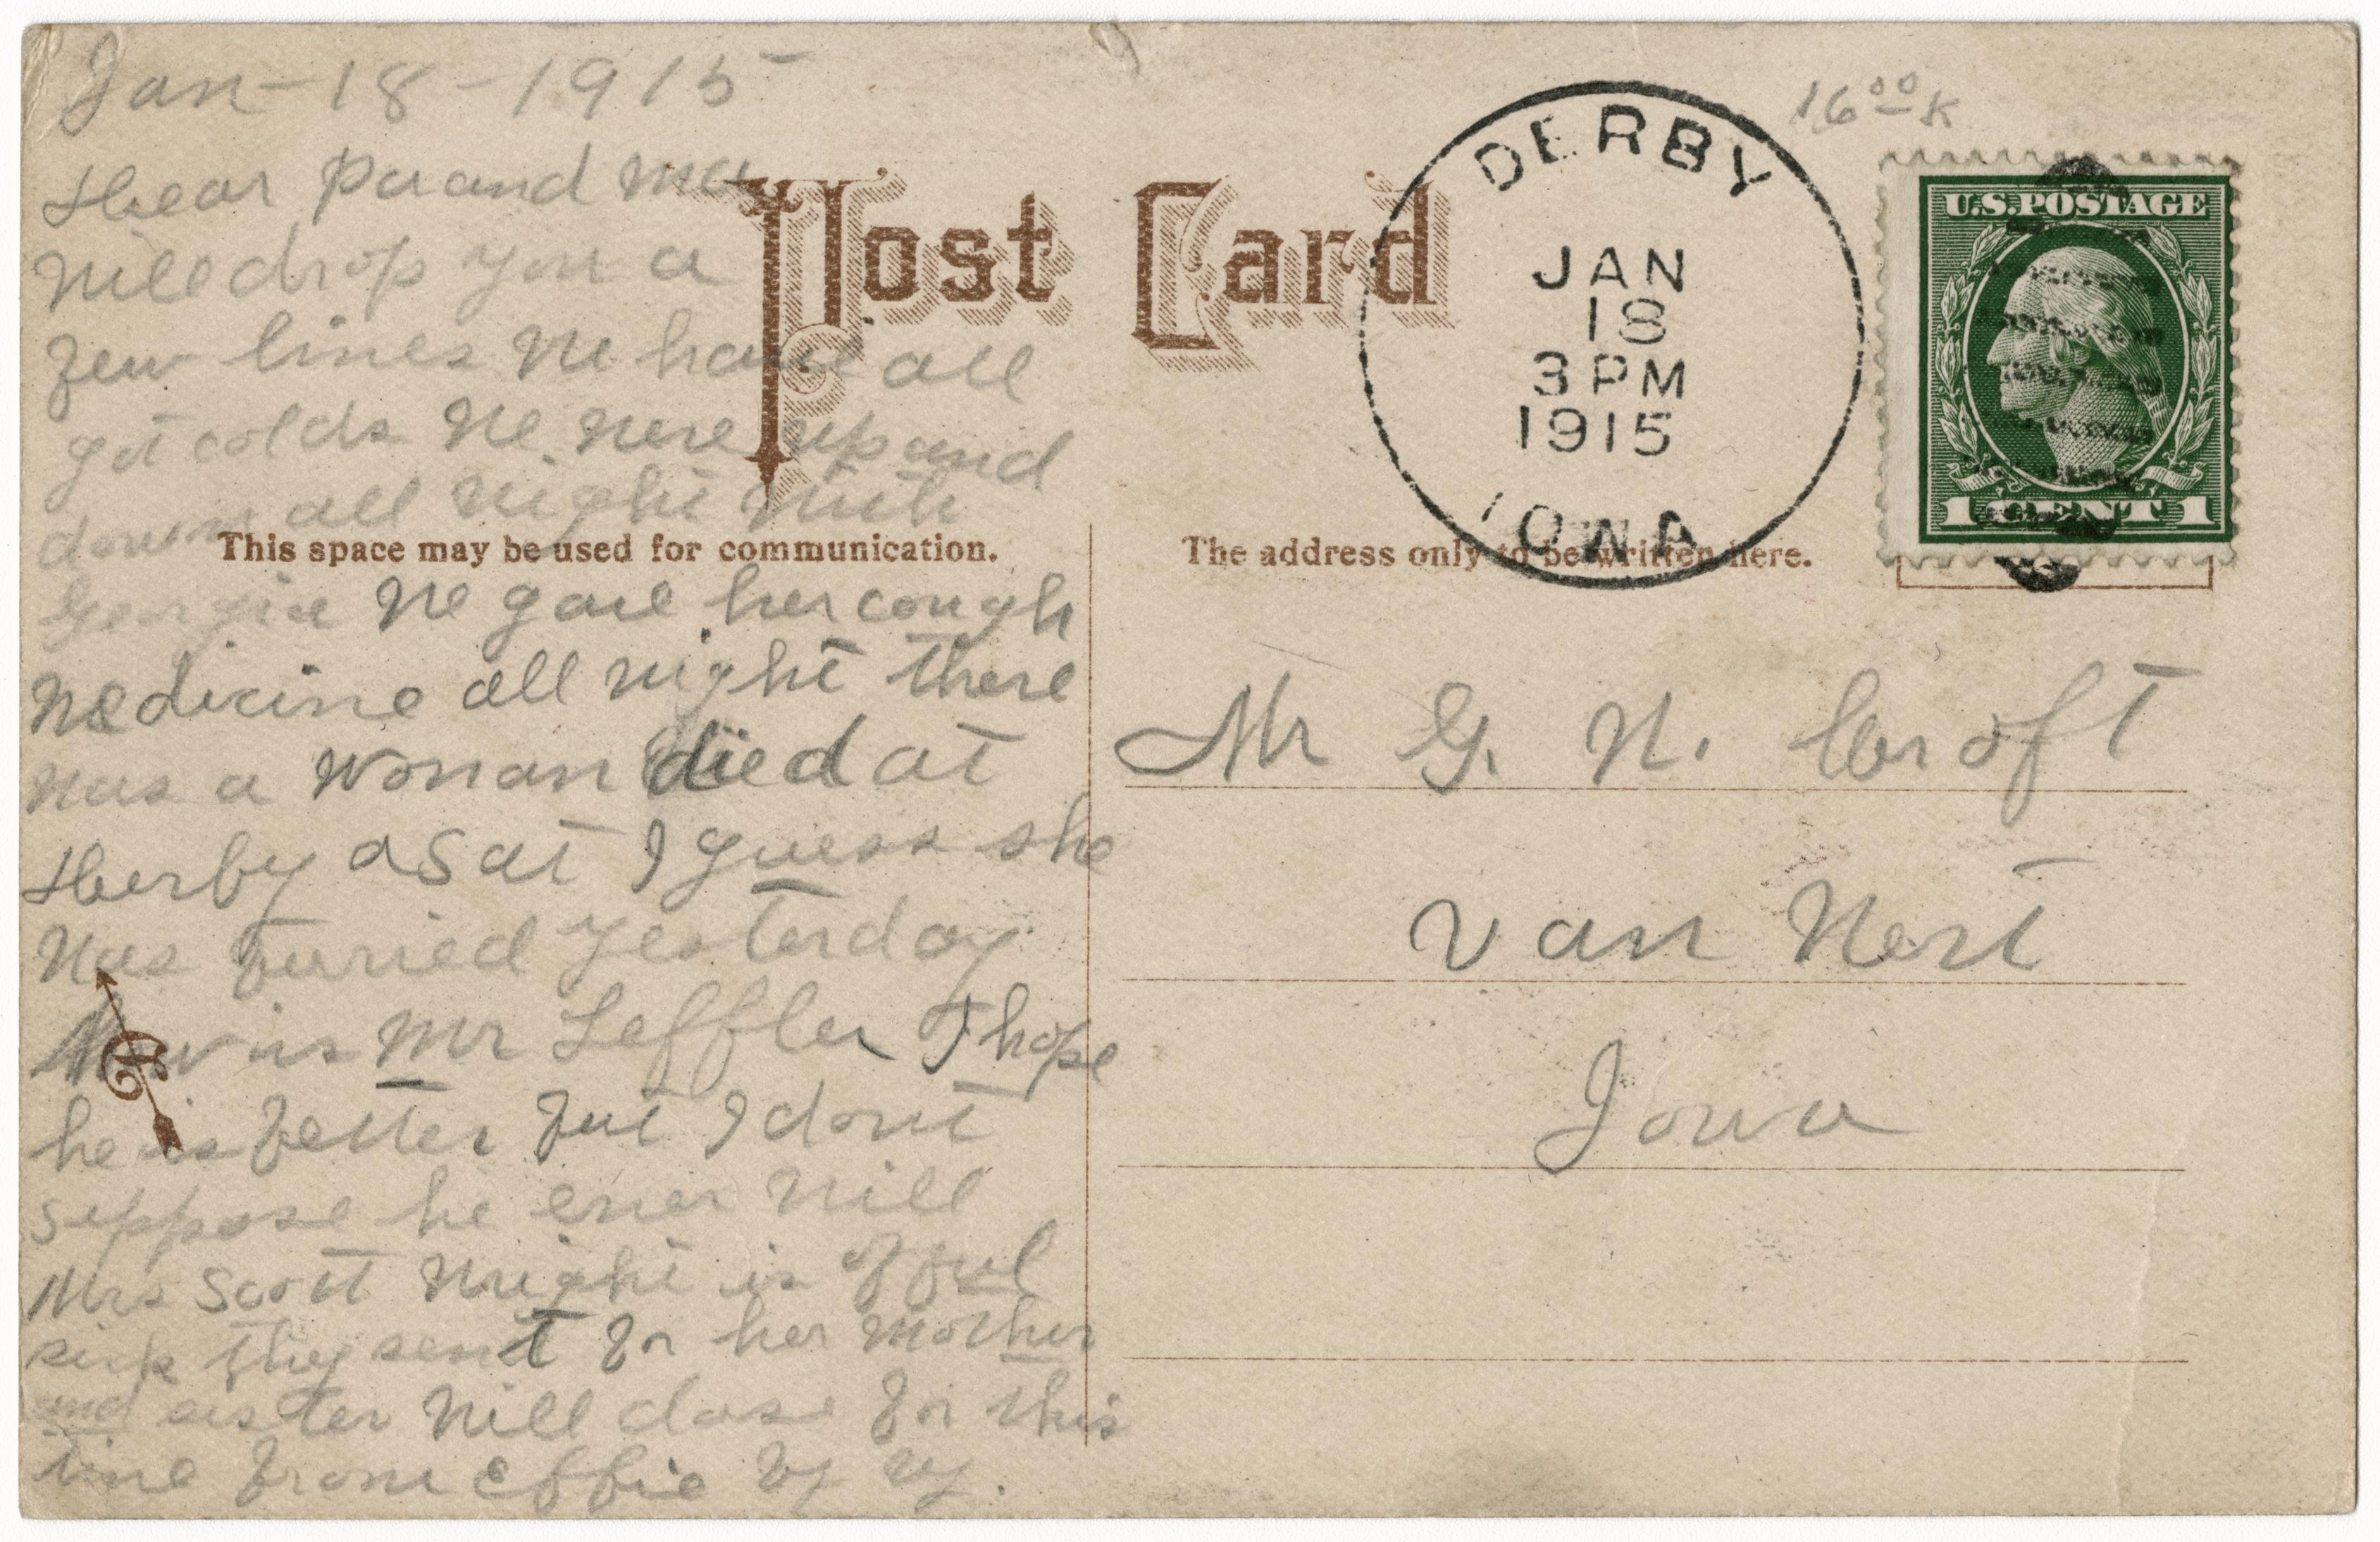 Jan-18-1915
Dear Pa and Ma
Will drop you a
few lines We have all
got colds We were up and
down all night with
Georgia We gave her cough
Medicine all night there
was a woman died at
Derby a Sat I guess she
was buried yesterday
How is Mr Leffler I hope
he is better but I dont
suppose he ever will
Mrs Scott Wright is offul
sick they sent for her mother
and sister Will close for this
time from Effie by by.
Post Card
This space may be used for communication.
The address only to be written here.
DERBY
JAN
18
3 PM
1915
IOWA
16⁰⁰ K
U.S. POSTAGE
1 CENT 1
Mr G. W. Croft
Van Wert
Iowa